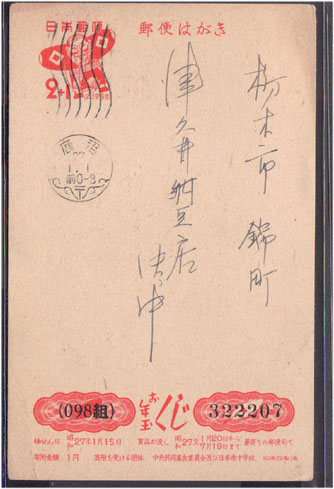 日本郵便
郵便はがき
2+1
鹿沼
1.1
前0-8
栃木市 錦町
津久井納豆店
(098組)
お年玉くじ
322207
抽せん日 昭和27年1月15日
賞品お渡し 昭和27年 1月20日から 7月19日まで 最寄りの郵便局で
寄附金額 1円 寄附を受ける団体、中央共同募金委員会及び日本赤十字社